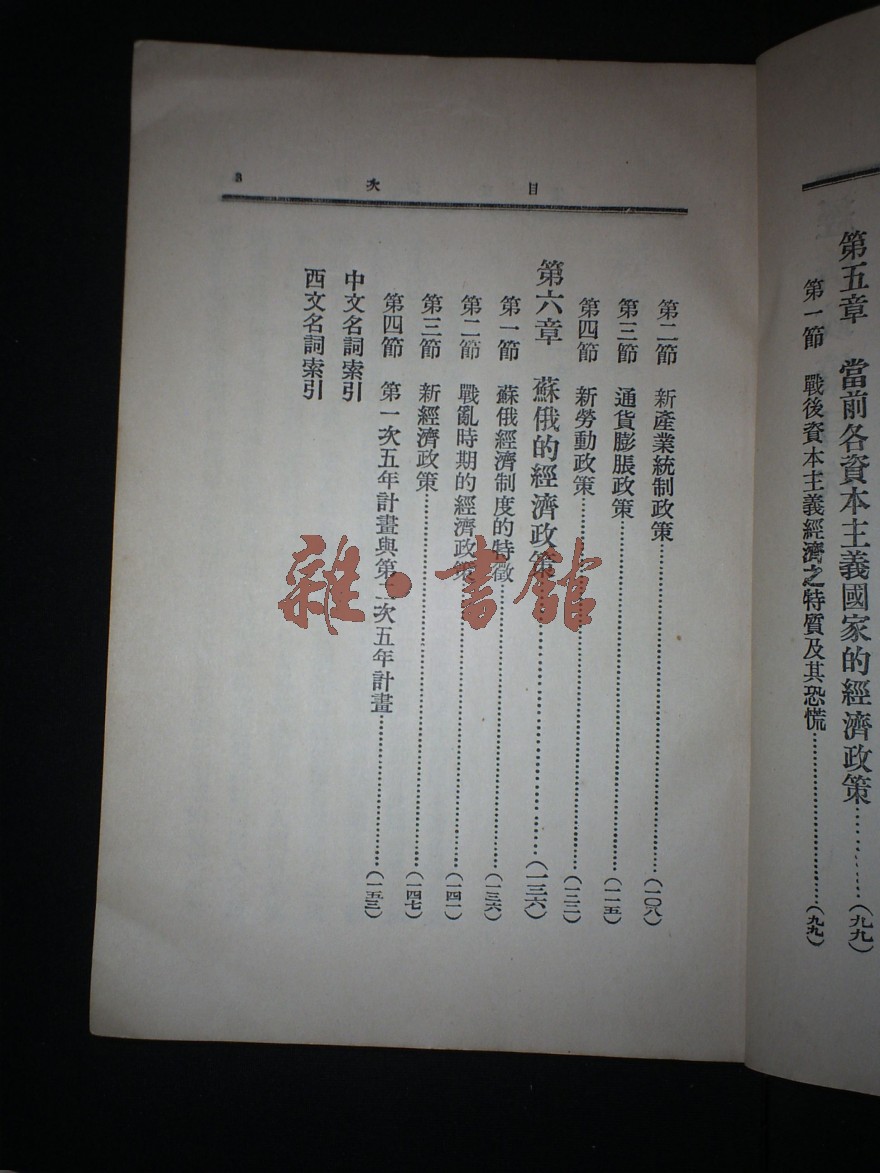 第五章　當前各資本主義國家的經濟政策……(九九)
第一節　戰後資本主義經濟之特質及其恐慌……(九九)
目次　3
第二節　新產業統制政策……(一〇八)
第三節　通貨膨脹政策……(一一五)
第四節　新勞動政策……(一三二)
第六章　蘇俄的經濟政策……(一三六)
第一節　蘇俄經濟制度的特徵……(一三六)
第二節　戰亂時期的經濟政策……(一四一)
第三節　新經濟政策……(一四七)
第四節　第一次五年計畫與第二次五年計畫……(一五三)
中文名詞索引
西文名詞索引
雜·書館